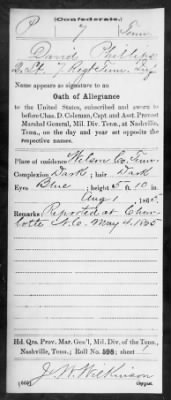 (Confederate.)
P 7 Tenn
David Phillips
7 Regt Tenn. Inf
Name appears as signature to an
Oath of Allegiance
to the United States, subscribed and sworn to
before Chas. D. Coleman, Capt. and Asst. Provost
Marshal General, Mil. Div. Tenn., at Nashville,
Tenn., on the day and year set opposite the
respective names.
Place of residence Wilson Co. Tenn.
Complexion Dark; hair Dark
Eyes Blue; height 5 ft. 10 in.
Aug 1 1865.
Remarks: Reported at Char-
lotte N.C. May 4. 1865
Hd. Qrs. Prov. Mar. Gen'l, Mil. Div. of the Tenn.,
Nashville, Tenn.; Roll No. 598; sheet 1
J. W. Wilkinson
Copyist.